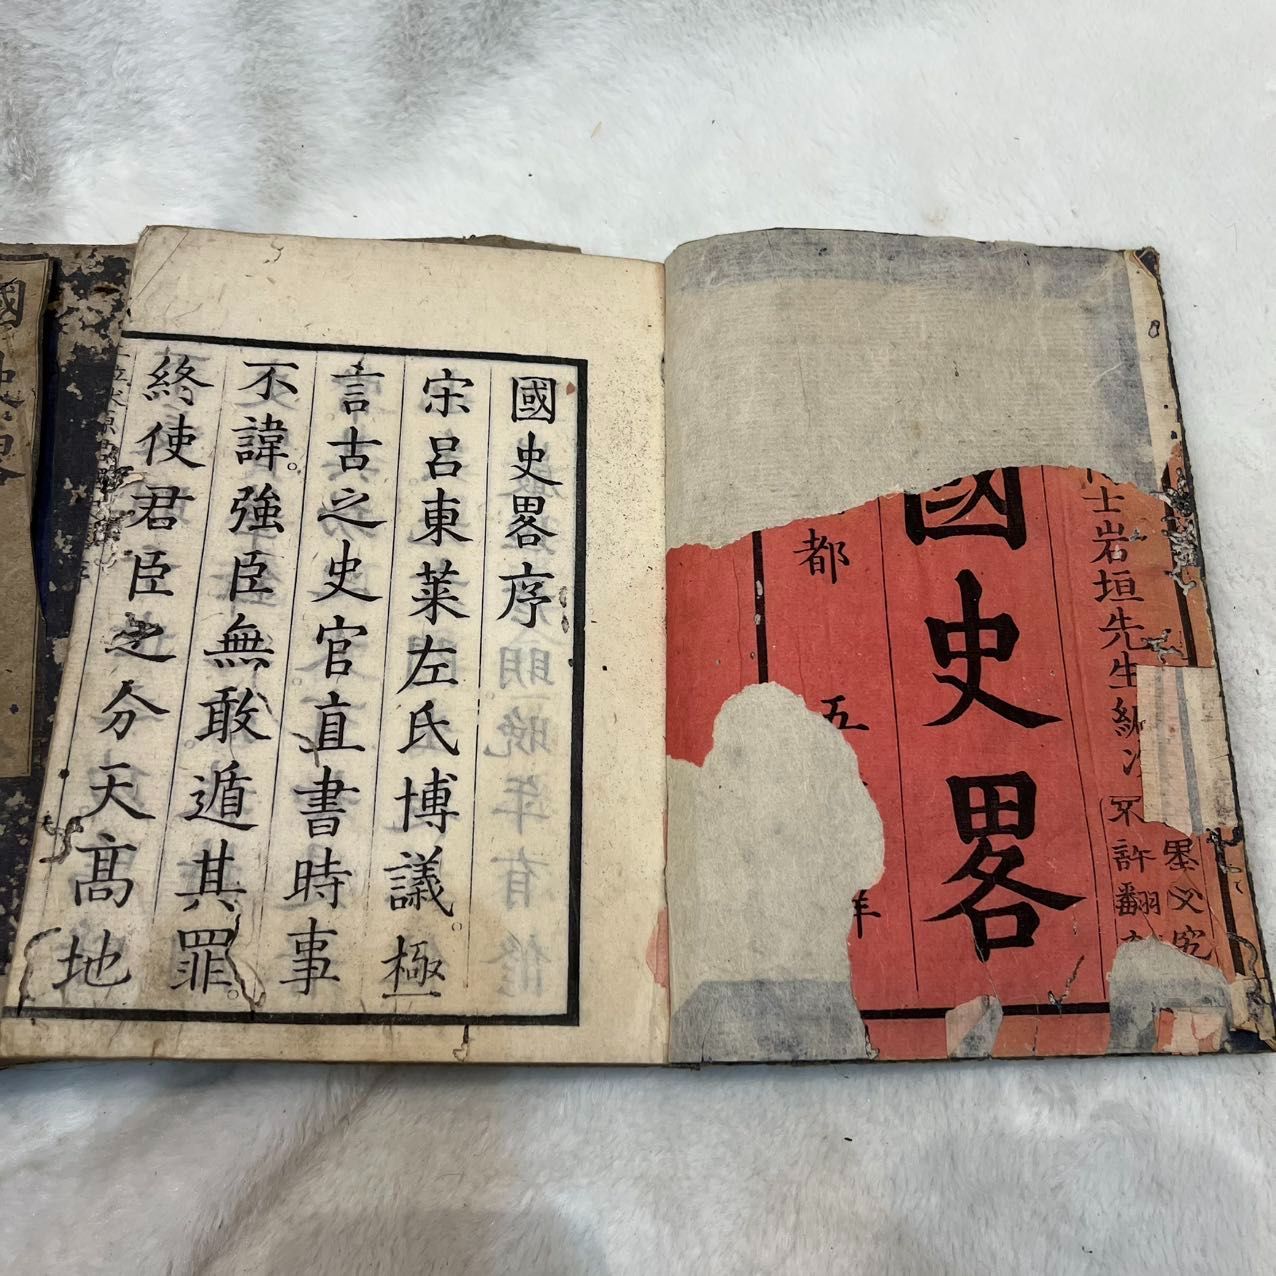 士岩垣先生編次
不許翻
國史畧
都
五
國史畧序
宋呂東萊左氏博議。極
言古之史官直書時事
不諱。強臣無敢遁其罪。
終使君臣之分天高地
國史畧